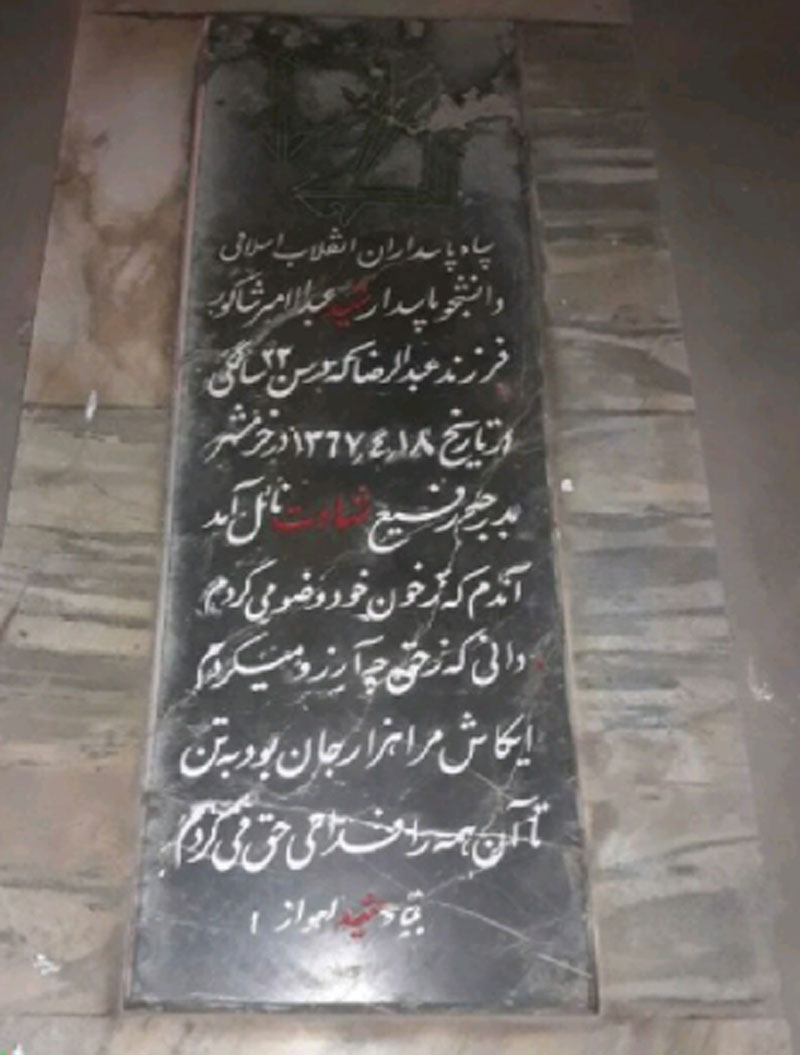 سپاه پاسداران انقلاب اسلامی
دانشجو پاسدار شهید عبدالامیر شاکور
فرزند عبدالرضا که در سن ۲۲ سالگی
در تاریخ ۱۳٦٧٫٤٫۱۸ در خرمشهر
بدرجه رفیع شهادت نائل آمد
آندم که ز خون خود وضو می کردم
دانی که ز حق چه آرزو میکردم
ایکاش مرا هزار جان بود به تن
تا آن همه را فدای حق می کردم
بنیاد شهید اهواز ۱